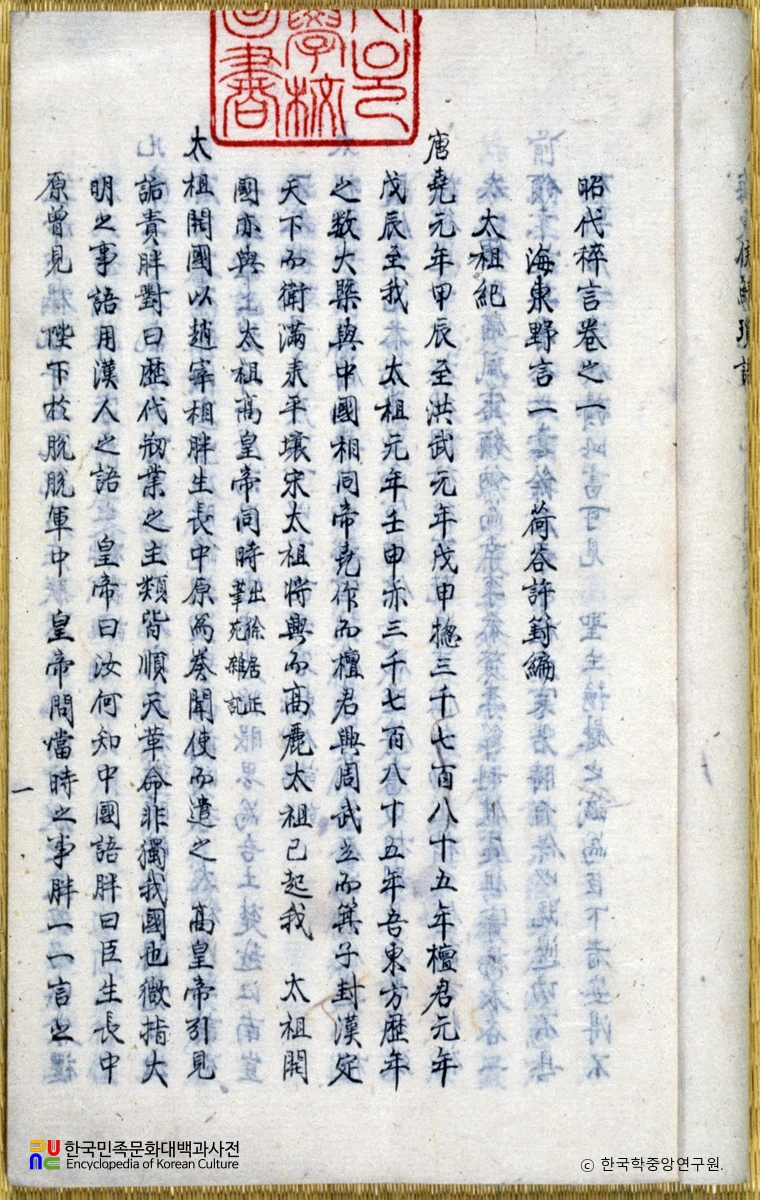 昭代稡言卷之一
海東野言一 荷谷許篈編
太祖紀
唐堯元年甲辰至洪武元年戊申摠三千七百八十五年檀君元年
戊辰至我 太祖元年壬申亦三千七百八十五年吾東方歷年
之數大槩與中國相同帝堯作而檀君興周武立而箕子封漢定
天下而衛滿來平壤宋太祖將興而高麗太祖已起我 太祖開
國亦與 太祖高皇帝同時出徐居正筆苑雜記
太祖開國以趙宰相胖生長中原爲奏聞使而遣之 高皇帝引見
詰責胖對曰歷代刱業之主類皆順天革命非獨我國也微指大
明之事語用漢人之語 皇帝曰汝何知中國語胖曰臣生長中
原曾見 陛下於脫脫軍中 皇帝問當時之事胖一一言之
一
한국민족문화대백과사전
Encyclopedia of Korean Culture
© 한국학중앙연구원.